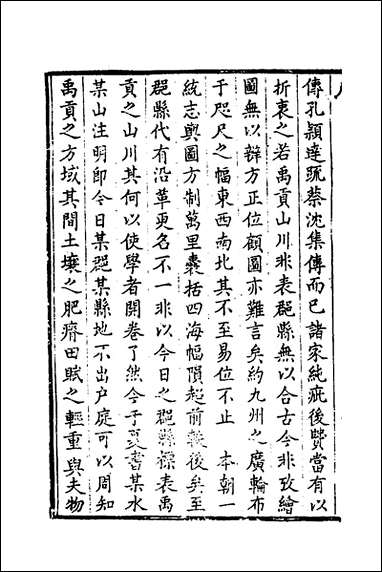 傳孔頴達疏蔡沈集傳而已諸家純疵後賢當有以
折衷之若禹貢山川非表郡縣無以合古今非攷繪
圖無以辯方正位顧圖亦難言矣約九州之廣輪布
于咫尺之幅東西南北其不至易位不止　本朝一
統志輿圖方制萬里囊括四海幅隕超前軼後矣至
郡縣代有沿革更名不一非以今日之郡縣標表禹
貢之山川其何以使學者開卷了然今于夏書某水
某山注明即今日某郡某縣地不出户庭可以周知
禹貢之方域其間土壤之肥瘠田賦之輕重與夫物